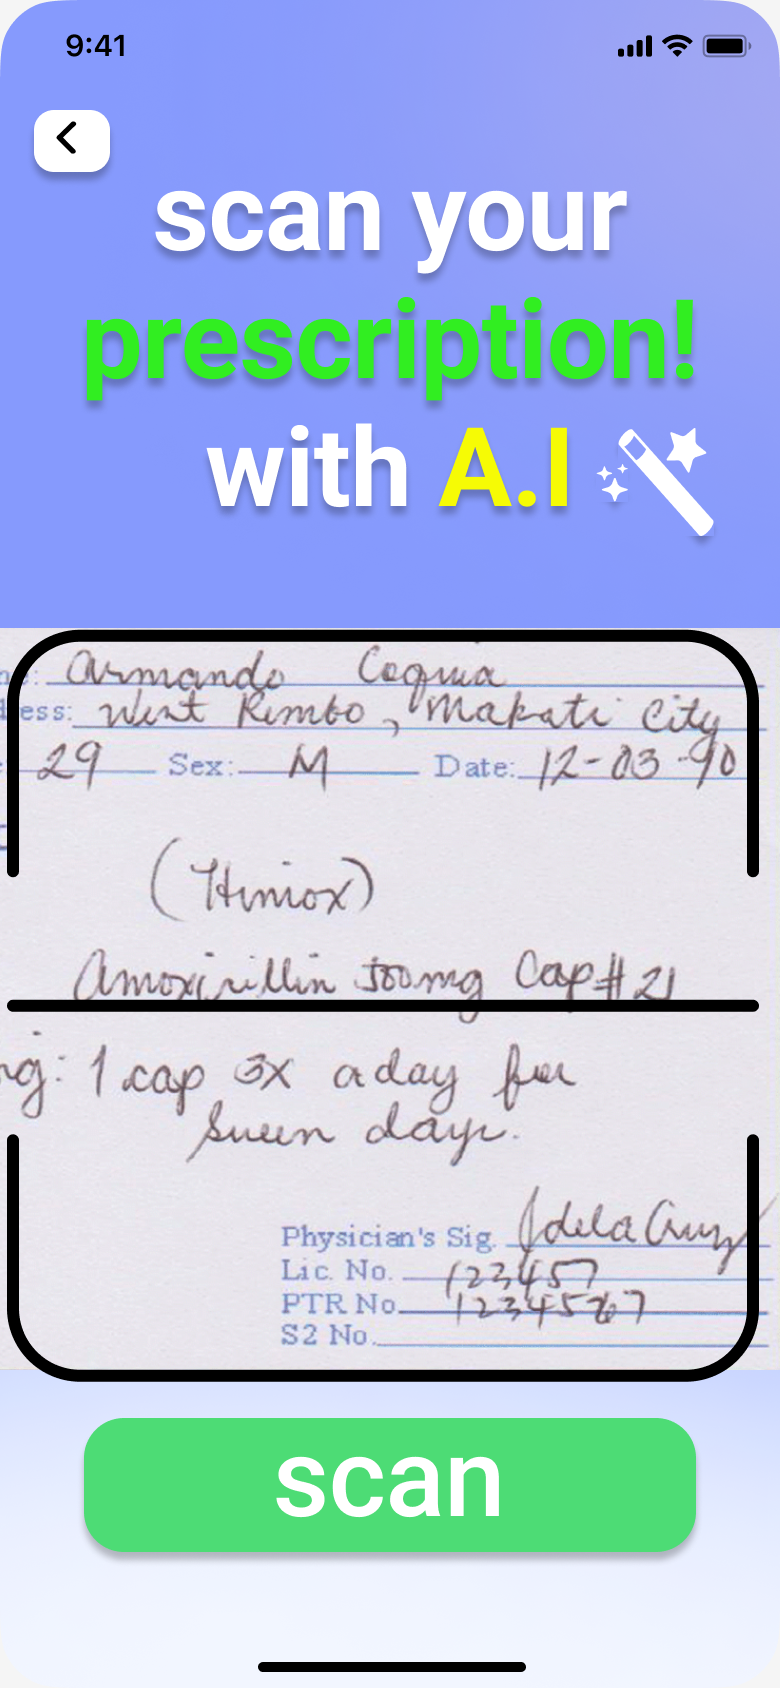 9:41
scan your
prescription!
with A.I
ne: Armando Coquia
dress: West Rembo, Makati City
29 Sex: M Date: 12-03-90
(Himox)
Amoxicillin 500mg Cap #21
ng: 1 cap 3x a day for
seven days.
Physician's Sig. Jdela Cruz
Lic. No. 123457
PTR No. 1234567
S2 No.
scan